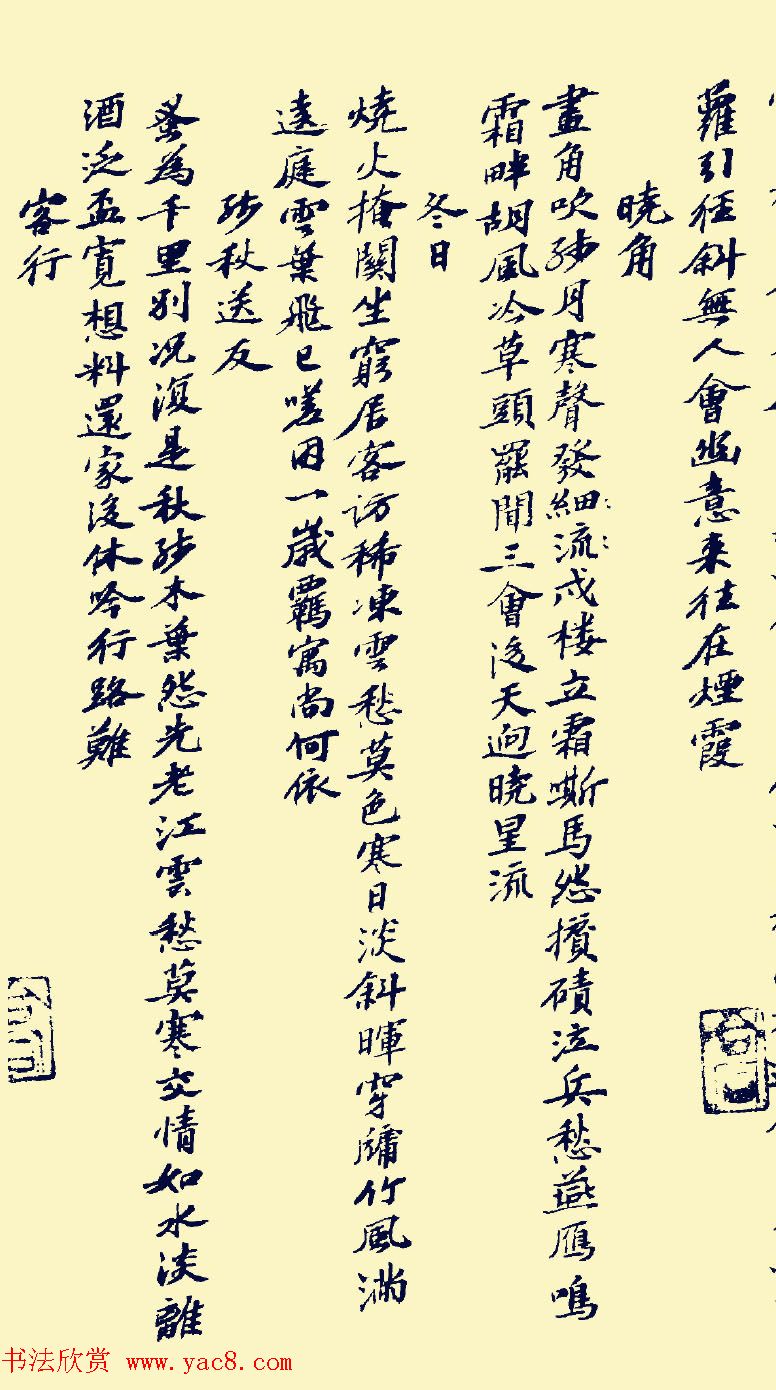 蘿引徑斜無人會幽意来往在煙霞
曉角
畫角吹殘月寒聲發細:流:戍楼立霜嘶馬怨攢磧泣兵愁燕鴈鳴
霜畔胡風冷草頭罷聞三會後天迥曉星流
冬日
燒火掩關坐窮居客訪稀凍雲愁莫色寒日淡斜暉穿牖竹風滿
遶庭雲葉飛已嗟周一歲羈寓尚何依
殘秋送友
蚤為千里別况復是秋殘木葉怨先老江雲愁莫寒交情如水淡離
酒泛盃寬想料還家後休吟行路難
客行
书法欣赏 www.yac8.com